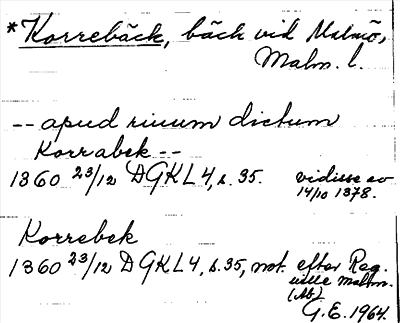 *Korrebäck, bäck vid Malmö,
Malm. l.
-- apud riuum dictum
Korrabek --
1360 23/12 DGKL4, s. 35. vidisse av
14/10 1378.
Korrebek
1360 23/12 DGKL4, s. 35, not. efter Reg.
ville Malm.
(Ab)
G.E. 1964.